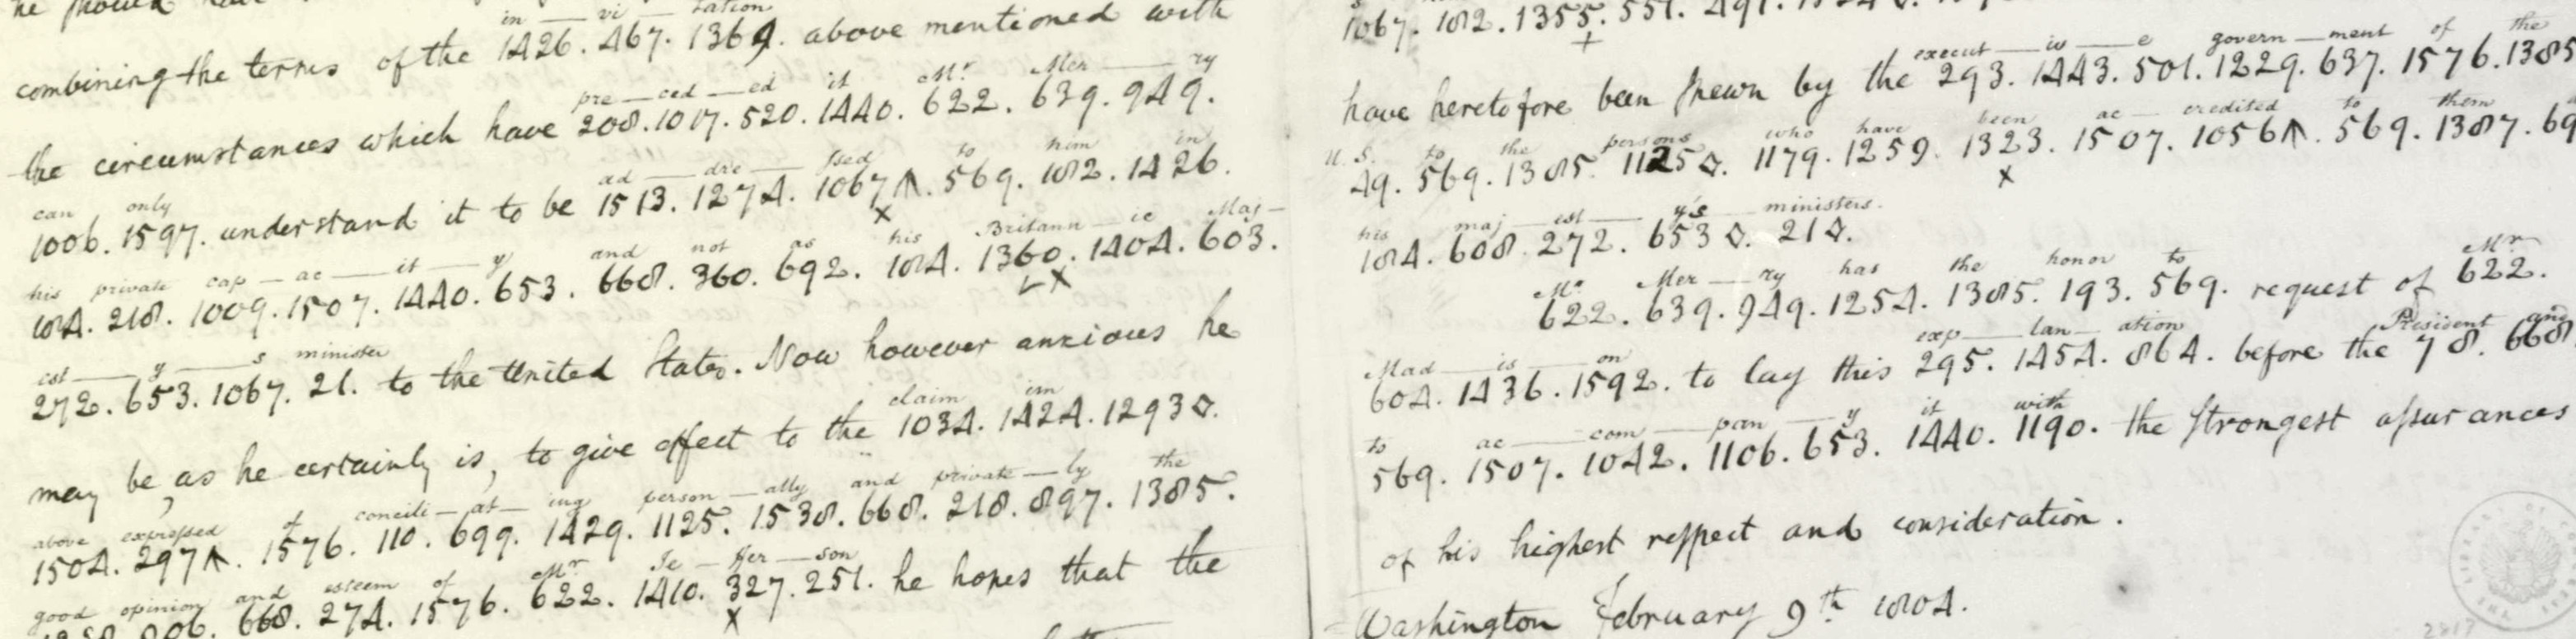 he should
in — vi — tation
combining the terms of the 1426. 467. 1369. above mentioned with
pre — ced — ed it Mr. Mer — ry
the circumstances which have 208. 1017. 520. 1440. 622. 639. 949.
can only ad — dre — ssed to him in
1006. 1597. understand it to be 1513. 1274. 1067Λ. 569. 182. 1426.
his private cap — ac — it — y and not as his Britann — ic Maj —
184. 218. 1009. 1507. 1440. 653. 668. 360. 692. 184. 1360. 1404. 603.
est — y — s minister
272. 653. 1067. 21. to the United States. Now however anxious he
claim im
may be, as he certainly is, to give effect to the 1034. 1424. 1293◊.
above expressed of concili — at — ing person — ally and private — ly the
1504. 297Λ. 1576. 110. 699. 1429. 1125. 1538. 668. 218. 897. 1385.
good opinion and esteem of Mr. Je — ffer — son
668. 274. 1576. 622. 1410. 327. 251. he hopes that the
1067. 182. 1355. 551. 491.
execut — iv — e govern — ment of the
have heretofore been shewn by the 293. 1443. 501. 1229. 637. 1576. 1385
U. S. to the persons who have been ac — credited to them
49. 569. 1385. 1125◊. 1179. 1259. 1323. 1507. 1056Λ. 569. 1387. 69
his maj — est — y's ministers.
184. 608. 272. 653◊. 21◊.
Mr. Mer — ry has the honor to Mr.
622. 639. 949. 1254. 1385. 193. 569. request of 622.
Mad — is — on exp — lan — ation President and
604. 1436. 1592. to lay this 295. 1454. 864. before the 78. 668
to ac — com — pan — y it with
569. 1507. 1042. 1106. 653. 1440. 1190. the strongest assurances
of his highest respect and consideration.
Washington February 9th 1804.